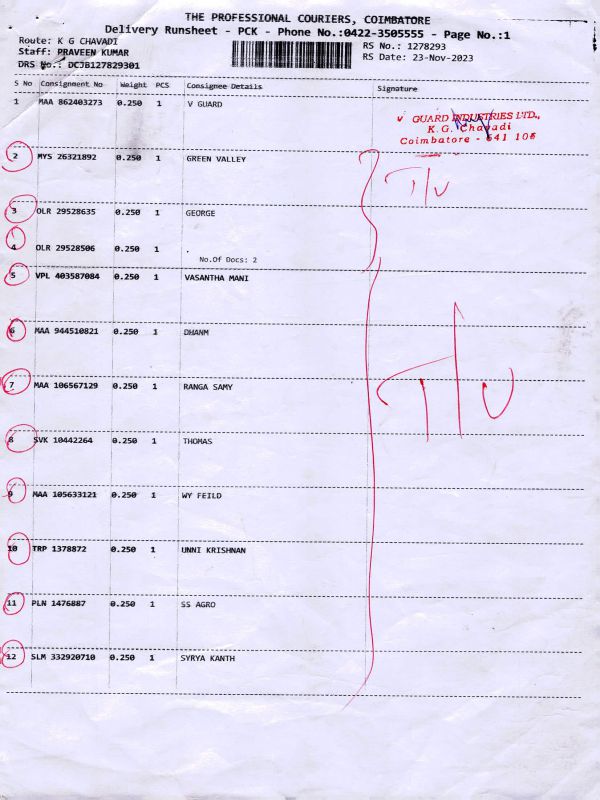 THE PROFESSIONAL COURIERS, COIMBATORE
Delivery Runsheet - PCK - Phone No.:0422-3505555 - Page No.:1
Route: K G CHAVADI
RS No.: 1278293
Staff: PRAVEEN KUMAR
RS Date: 23-Nov-2023
DRS No.: DCJB127829301
S No Consignment No Weight PCS Consignee Details Signature
1 MAA 862403273 0.250 1 V GUARD
V GUARD INDUSTRIES LTD.,
K.G. Chavadi
Coimbatore - 641 105
2 MYS 26321892 0.250 1 GREEN VALLEY
T/U
3 OLR 29528635 0.250 1 GEORGE
4 OLR 29528506 0.250 1 .
No.Of Docs: 2
5 VPL 403587084 0.250 1 VASANTHA MANI
6 MAA 944510821 0.250 1 DHANM
7 MAA 106567129 0.250 1 RANGA SAMY
T/U
8 SVK 10442264 0.250 1 THOMAS
9 MAA 105633121 0.250 1 WY FEILD
10 TRP 1378872 0.250 1 UNNI KRISHNAN
11 PLN 1476887 0.250 1 SS AGRO
12 SLM 332920710 0.250 1 SYRYA KANTH